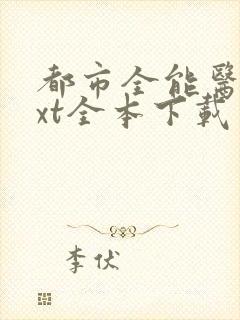 都市全能醫
xt全本下載
李伏